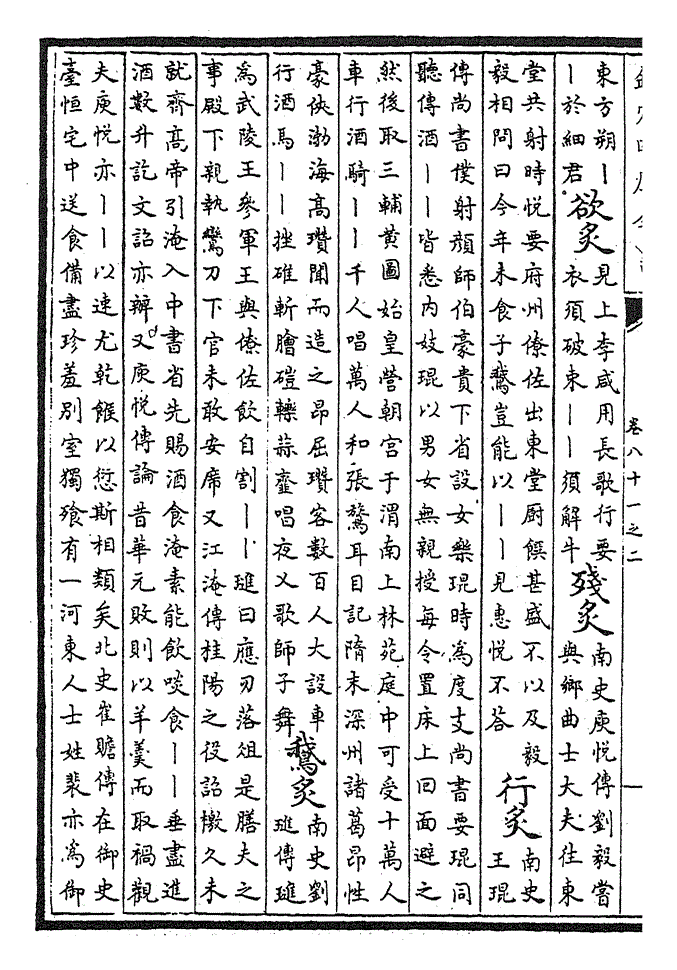 卷八十一之二
東方朔丨
丨於細君
欲炙
見上李咸用長歌行要
衣須破束丨丨須解牛
殘炙
南史庾悅傳劉毅嘗
與鄉曲士大夫往東
堂共射時悅要府州僚佐出東堂厨饌甚盛不以及毅
毅相問曰今年未食子鵝豈能以丨丨見惠悅不答
行炙
南史
王琨
傳尚書僕射顏師伯豪貴下省設女樂琨時為度支尚書要琨同
聽傳酒丨丨皆悉内妓琨以男女無親授每令置床上回面避之
然後取三輔黄圖始皇營朝宫于渭南上林苑庭中可受十萬人
車行酒騎丨丨千人唱萬人和張鷟耳目記隋末深州諸葛昂性
豪俠渤海髙瓚聞而造之昂屈瓚客數百人大設車
行酒馬丨丨挫碓斬膾磑轢蒜虀唱夜乂歌師子舞
鵝炙
南史劉
璡傳璡
為武陵王參軍王與僚佐飲自割丨丨璡曰應刃落俎是膳夫之
事殿下親執鸞刀下官未敢安席又江淹傳桂陽之役詔檄久未
就齊髙帝引淹入中書省先賜酒食淹素能飲啖食丨丨垂盡進
酒數升訖文誥亦辦又庾悅傳論昔華元敗則以羊羹而取禍觀
夫庾悅亦丨丨以速尤乾餱以愆斯相類矣北史崔贍傳在御史
臺恒宅中送食備盡珍羞別室獨飡有一河東人士姓裴亦為御